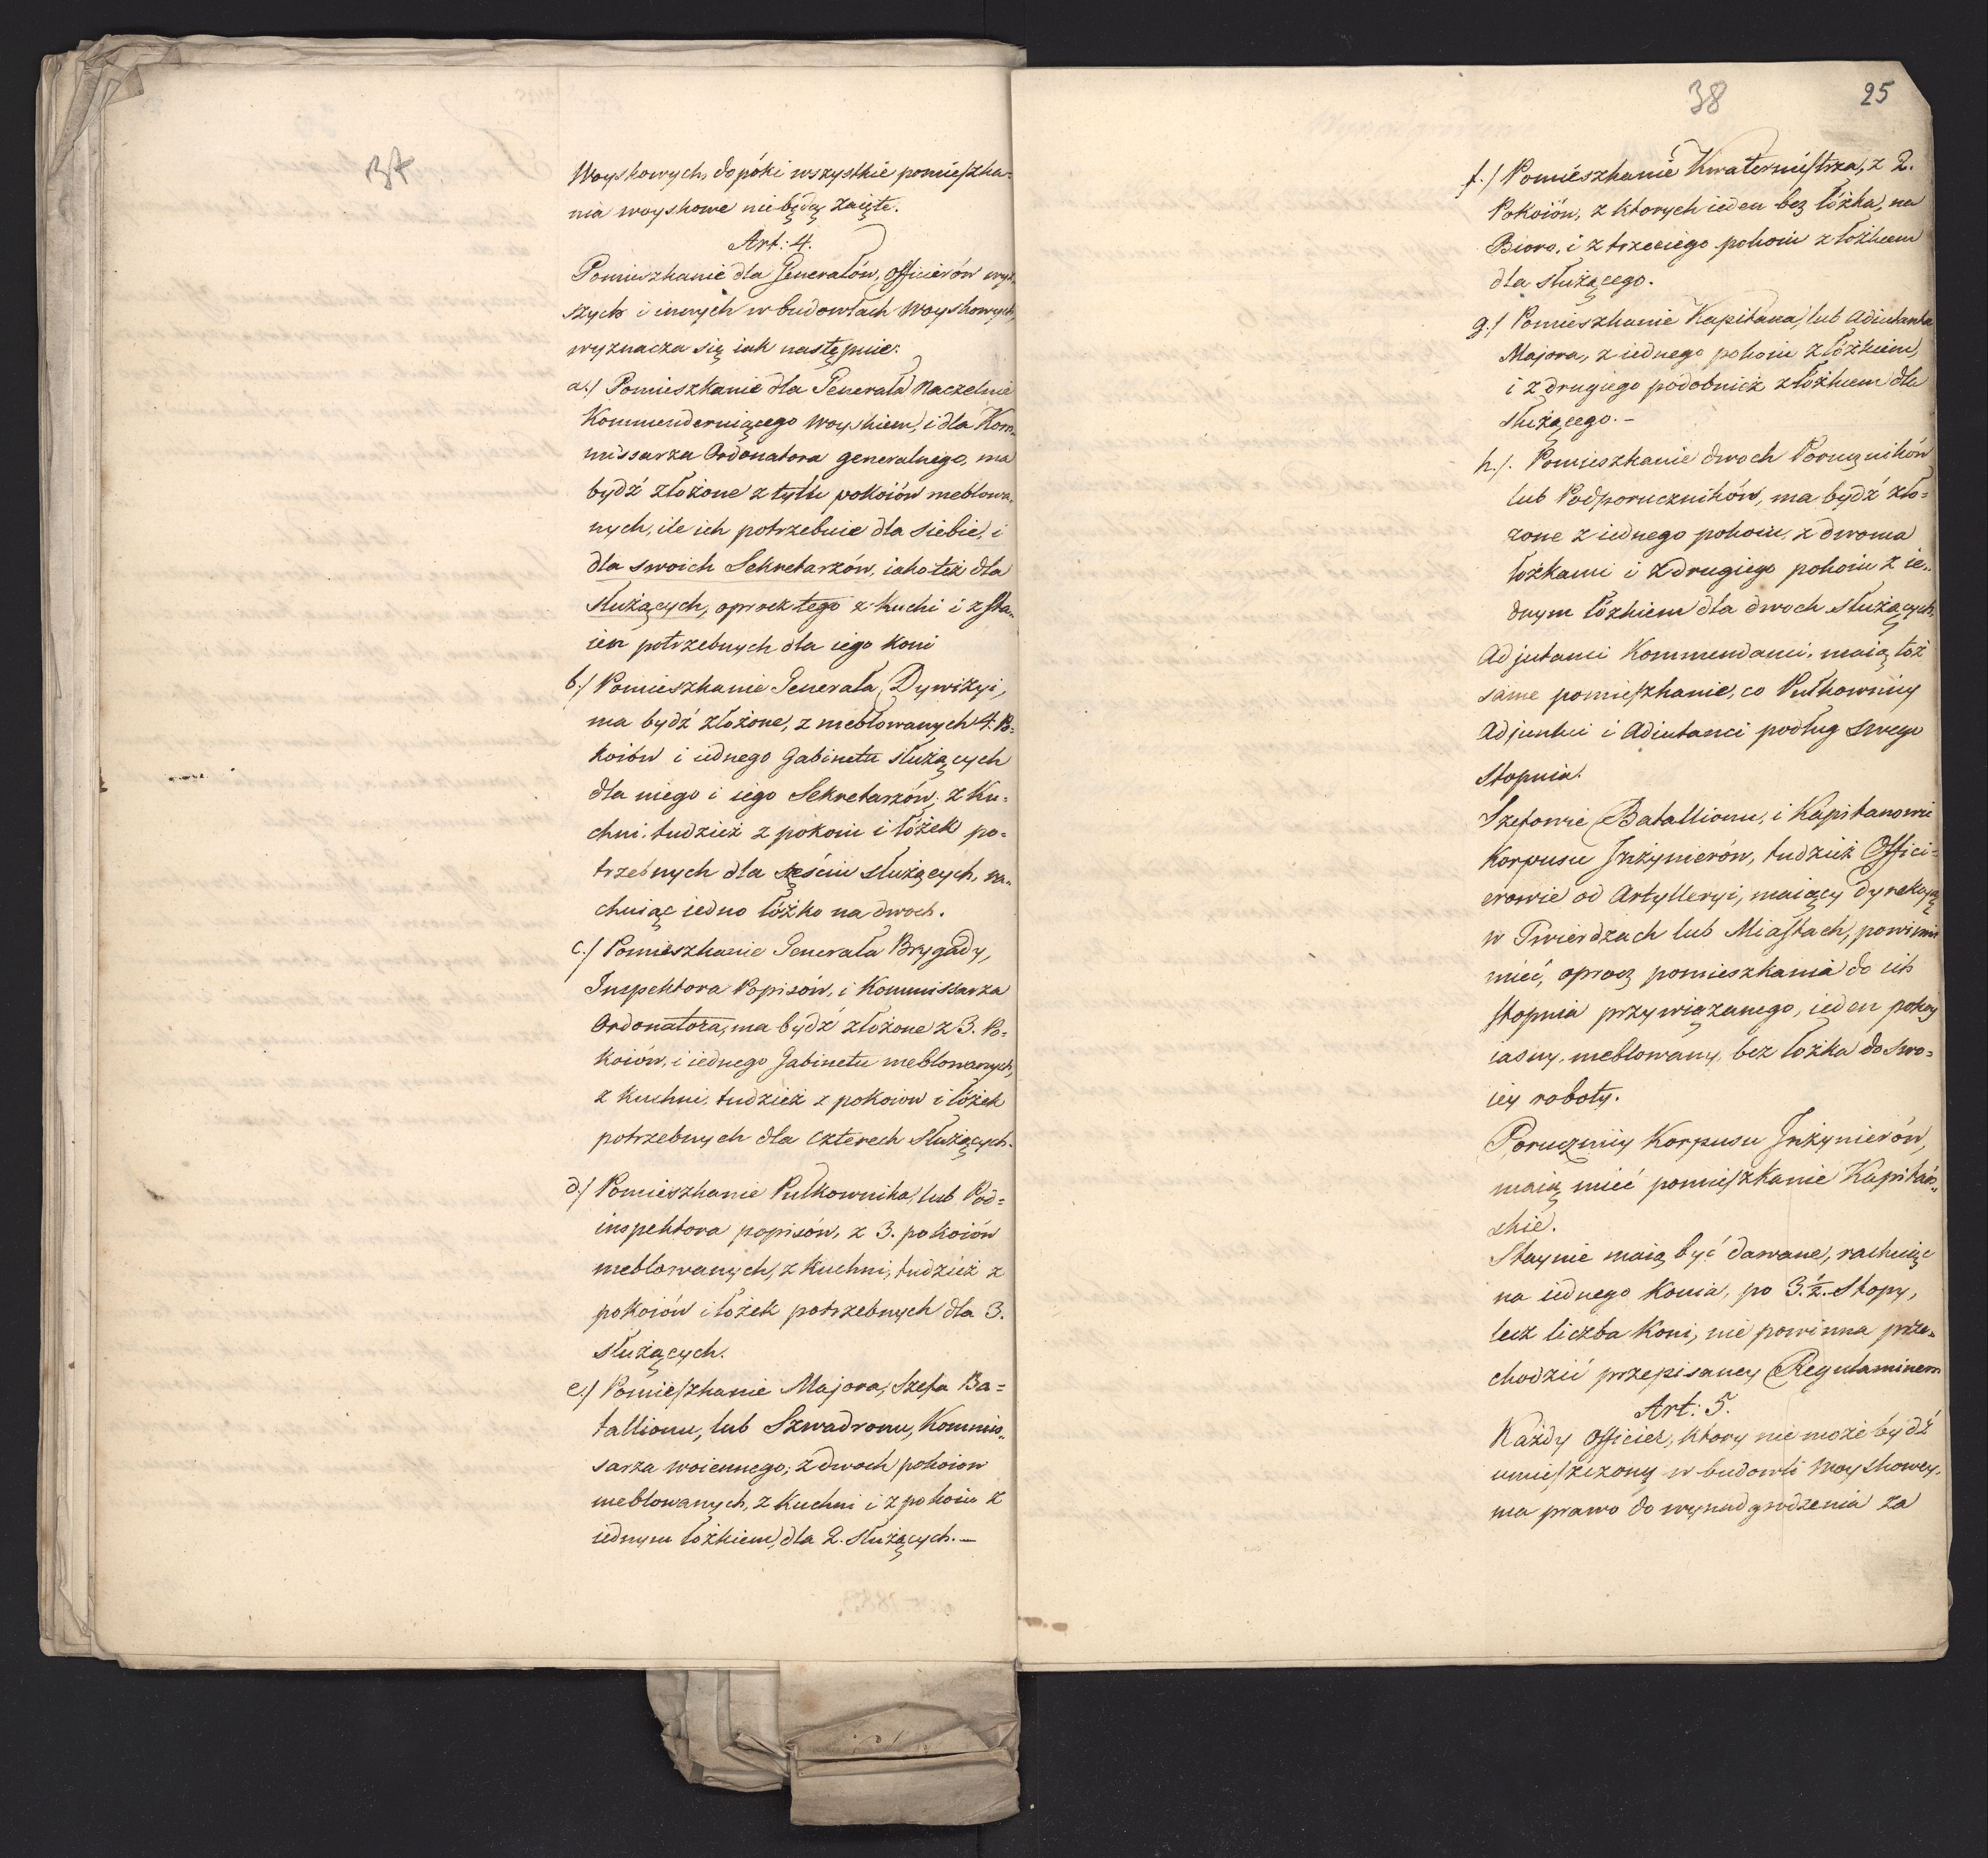 37
Woyskowych, dopóki wszystkie pomieszka=
nia woyskowe niebędą zaięte.
Art: 4.
Pomieszkanie dla Generałów, officierów wyż=
szych i innych w budowlach Woyskowych,
wyznacza się iak następnie:
a./ Pomieszkanie dla Generała Naczelnie
Kommenderuiącego Woyskiem, i dla Kom=
missarza Ordonatora generalnego, ma
bydź złożone z tylu pokoiów meblowa=
nych, ile ich potrzebuie dla siebie, i
dla swoich Sekretarzów, iako też dla
służących, oprocz tego z kuchi i z sta=
ien potrzebnych dla iego Koni
b./ Pomieszkanie Generała Dywizyi,
ma bydź złożone, z meblowanych 4. Po=
koiów i iednego Gabinetu służących
dla niego i iego Sekretarzów; z Ku=
chni, tudzież z pokoiu i łóżek po=
trzebnych dla sześciu służących, ra=
chuiąc iedno łóżko na dwoch.
c./ Pomieszkanie Generała Brygady,
Inspektora Popisów, i Kommissarza
Ordonatora, ma bydź złożone z 3. Po=
koiów, i iednego Gabinetu meblowanych,
z Kuchni, tudzież z pokoiow i łóżek
potrzebnych dla czterech Służących.
d./ Pomieszkanie Pułkownika, lub Pod=
inspektora popisów, z 3. pokoiów
meblowanych, z Kuchni, tudzież z
pokoiów i łożek potrzebnych dla 3.
służących.
e./ Pomieszkanie Majora, Szefa Ba=
tallionu, lub Szwadronu, Kommis=
sarza woiennego; z dwoch pokoiow
meblowanych, z Kuchni i z pokoiu z
iednym łóżkiem, dla 2. służących.—
38
25
f./ Pomieszkanie Kwatermistrza, z 2.
Pokoiów, z ktorych ieden bez łóżka, na
Bioro, i z trzeciego pokoiu z łożkiem
dla służącego.
g./ Pomieszkanie Kapitana, lub Adiutanta
Majora, z iednego pokoiu z łóżkiem,
i z drugiego podobnież z łóżkiem dla
służącego.—
h./. Pomieszkanie dwoch Poruczników
lub Podporuczników, ma bydź zło=
zone z iednego pokoiu, z dwoma
łożkami i z drugiego pokoiu z ie=
dnym łózkiem dla dwoch służących.
Adjutanci Kommendanci, maią też
same pomieszkanie, co Pułkownicy
Adjunkci i Adiutanci podług swego
Stopnia.
Szefowie Batallionu, i Kapitanowie
Korpusu Jnżynierów, tudzież Offici=
erowie od Artylleryi, maiący dyrekcyą
w Twierdzach lub Miastach, powinni
mieć, oprocz pomieszkania do ich
stopnia przywiązanego, ieden pokoy
iasny, meblowany, bez łożka do swo=
iey roboty.
Porucznicy Korpusu Jnżynierów,
maią mieć pomieszkanie Kapitań=
skie.
Staynie maią być dawane, rachuiąc
na iednego Konia, po 3.½. Stopy,
lecz liczba Koni, nie powinna prze=
chodzić przepisaney Regulaminem
Art: 5.
Każdy officier, ktory nie może bydź
umieszczony w budowli Woyskowey,
ma prawo do wynadgrodzenia za